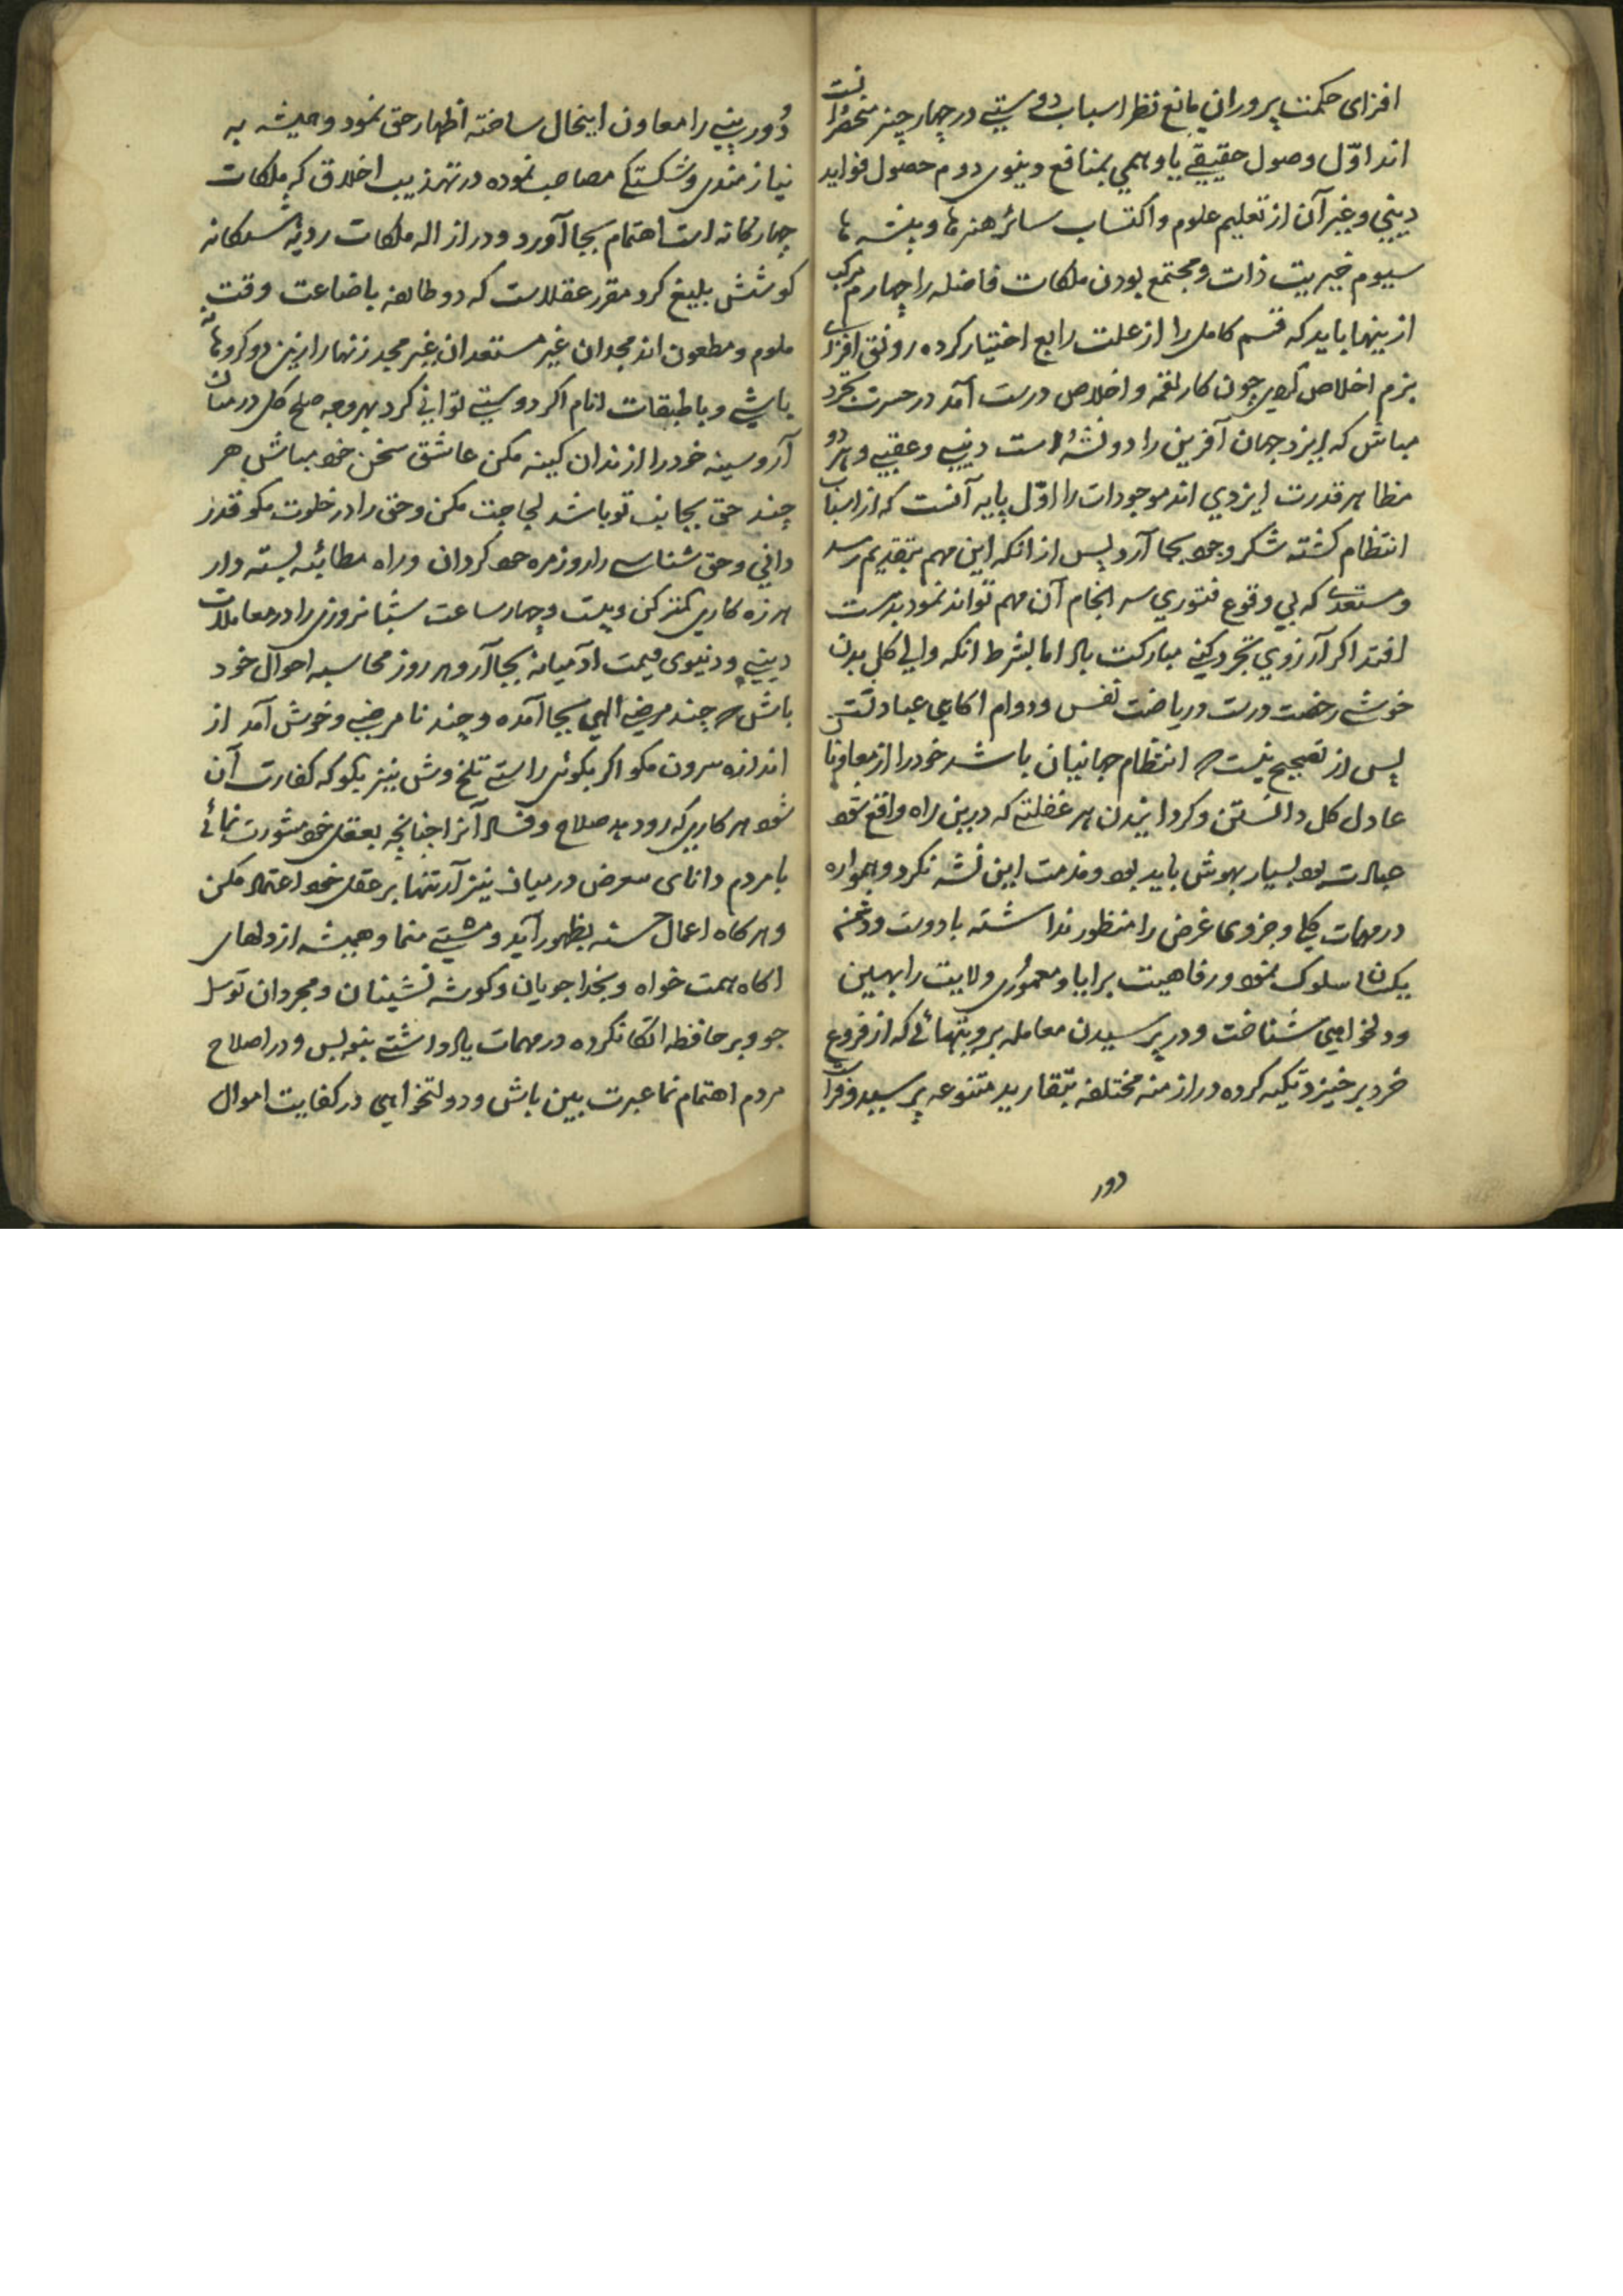 افزای حکمت پروران مانع نظر اسباب دوستی در چهار چیز منحصر دانست
اند اوّل وصول حقیقے یا وهمي بمنافع دنیوی دوم حصول فواید
دیني و غیر آن از تعلیم علوم و اکتساب سائر هنرها و پیشه ها
سیوم خیریت ذات و مجتمع بودن ملکات فاضله را چهارم مرکب
ازینها باید که قسم کامل را از علت رابع اختیار کرده رونق افزای
بزم اخلاص کردی چون کار لقمه و اخلاص درست آمد در حسرت تجرد
مباش که ایزد جهان آفرین را دو نشهٔ است دنیی و عقبی و هر دو
مظاهر قدرت ایزدي اند موجودات را اوّل پایه آنست که از اسباب
انتظام گشته شکر وجود بجا آرد پس از انکه این مهم بتقدیم رسد
و مستعدی که بي وقوع فتوري سر انجام آن مهم تواند نمود بدست
افتد اکر آرزوي تجرد کنی مبارکت باد اما بشرط انکه والی کل بدن
خوشی رخصت درست و ریاضت نفس و دوام اکاهی عبادتت
پس از تصحیح نیت که انتظام جهانیان باشد خود را از معاونان
عادل کل دانستن و کردانیدن هر غفلتے که درین راه واقع شود
عبادت بود بسیار بهوش باید بود و مذمت این نشه نکرد و همواره
در مهمات کلي و جزوی غرض را منظور نداشته با دوست و دشمن
یکسان سلوک نمود و رفاهیت برایا و معموُری ولایت را بهین
و دلخواهي شناخت و در پرسیدن معامله برو بتنهائے که از فروع
خرد برخیزد تکیه کرده در ازمنه مختلفه بتقارید متنوعه پرسید و فراست
دور
دُوربینے را معاون اینحال ساخته اظهار حق نمود و همیشه به
نیازمندی و شکستکے مصاحب نموده در تهذیب اخلاق که ملکات
چهارکانه است اهتمام بجا آورد و در ازاله ملکات ردیه شسکانه
کوشش بلیغ کرد مقرر عقلاست که دو طایفه باضاعت وقت
ملوم و مطعون اند مجدان غیر مستعد و مستعدان غیر مجد زنهار ازین دو کروه نه
باشي و با طبقات انام اکر دوستے توانی کرد بهر وجه صلح کل در میان
آر و سینه خود را از زندان کینه مکن عاشق سخن خود مباش هر
چند حق بجانب تو باشد لجاجت مکن و حق را در خلوت مکو قدر
دانی و حق شناسے را روزمره خود کردان و راه مطائبه بسته دار
هرزه کاری کمتر کن و بیست و چهار ساعت شبانروزی را در معاملات
دینی و دنیوی قیمت آدمیانه بجا آر و هر روز محاسبه احوال خود
باش که چند مرضی الهي بجا آمده و چند نا مرضی و خوش آمد از
اندازه بیرون مکو اکر بکوئی راستے تلخ وش نیز بکو که کفارت آن
شود هر کاری که رود بد صلاح و فساد آنرا چنانچه بعقل خود مشورت نمائے
با مردم دانای معرض در میان نیز آر تنها بر عقل خود اعتماد مکن
و هر کاه اعمال حسنه بظهور آید و مشیتے منما و همیشه از دلهای
اکاه همت خواه و بخدا جویان و کوشه نشینان و مجردان توسل
جو و بر حافظه اتکا نکرده در مهمات یادداشتے بنویس و در اصلاح
مردم اهتمام نما عبرت بین باش و دولتخواهی در کفایت اموال